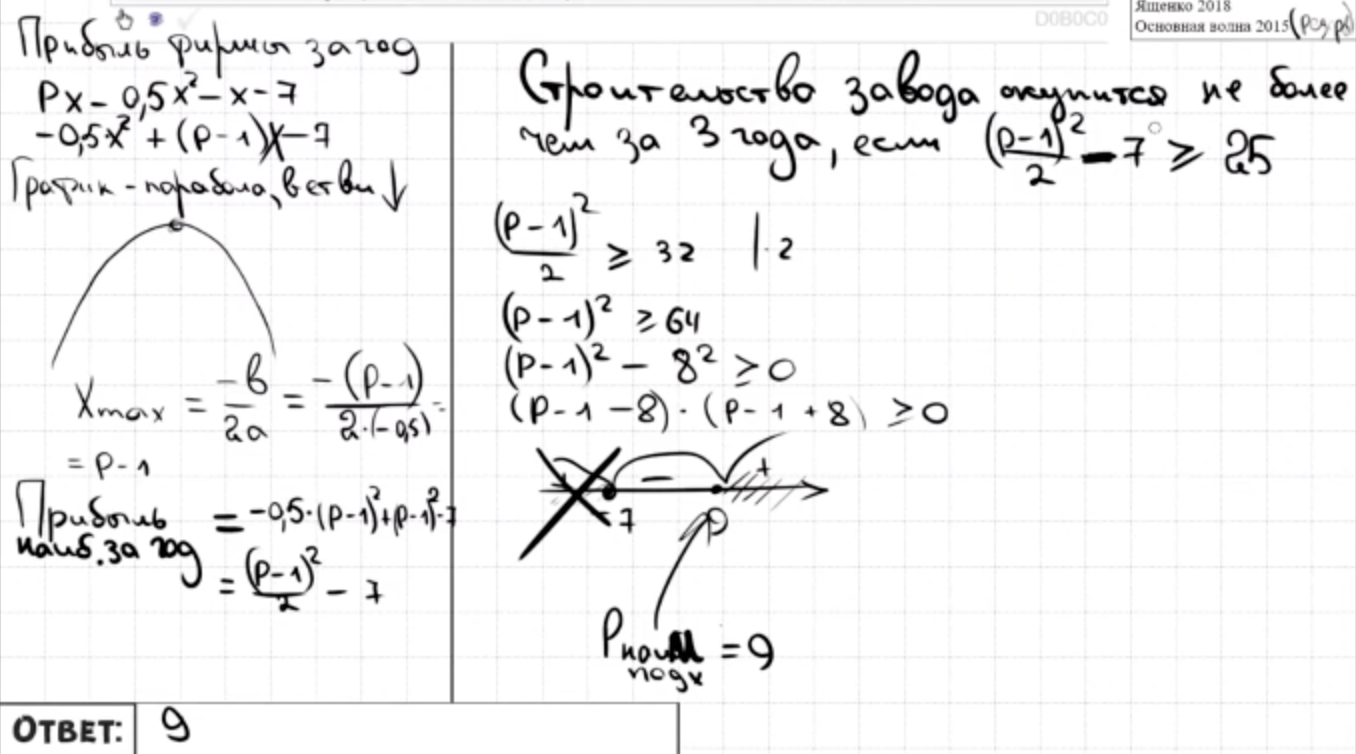 D0B0C0
Ященко 2018
Основная волна 2015 (Рез рв)
Прибыль фирмы за год
Px - 0,5x² - x - 7
-0,5x² + (P-1)x - 7
График - парабола, ветви ↓
Xmax = -b/2a = -(P-1)/2·(-0,5) =
= P-1
Прибыль наиб. за год = -0,5·(P-1)²+(P-1)²-7
= (P-1)²/2 - 7
Строительство завода окупится не более
чем за 3 года, если (P-1)²/2 - 7 ≥ 25
(P-1)²/2 ≥ 32 |·2
(P-1)² ≥ 64
(P-1)² - 8² ≥ 0
(P-1-8)·(P-1+8) ≥ 0
+ - +
-7 9
Pнаим подх = 9
ОТВЕТ: 9